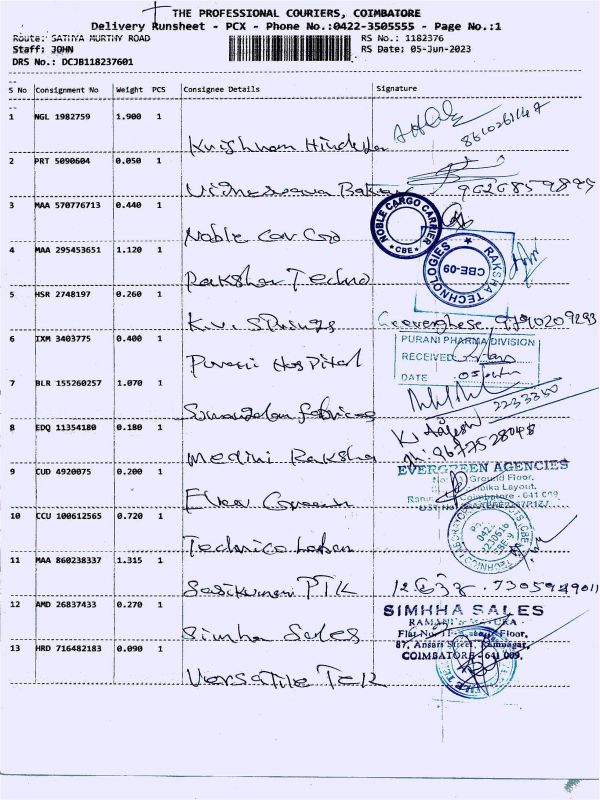 THE PROFESSIONAL COURIERS, COIMBATORE
Delivery Runsheet - PCX - Phone No.:0422-3505555 - Page No.:1
Route: SATHYA MURTHY ROAD RS No.: 1182376
Staff: JOHN RS Date: 05-Jun-2023
DRS No.: DCJB118237601
S No Consignment No Weight PCS Consignee Details Signature
1 NGL 1982759 1.900 1
8610261147
Krishnam
2 PRT 5090604 0.050 1
3 MAA 570776713 0.440 1
NOBLE CARGO CARRIER
CBE
Noble Car Go
4 MAA 295453651 1.120 1
RAKSHA TECHNOLOGIES
CBE-09
Raksha Techno
5 HSR 2748197 0.260 1
K.V. Springs
6 IXM 3403775 0.400 1
PURANI PHARMA DIVISION
RECEIVED
DATE
Purani Hospital
7 BLR 155260257 1.070 1
2233350
Fabrics
8 EDQ 11354180 0.180 1
Ph: 9677528048
Medini Raksha
9 CUD 4920075 0.200 1
EVERGREEN AGENCIES
Ground Floor,
Layout,
Coimbatore - 641 009
Ever Green
10 CCU 100612565 0.720 1
Technico
11 MAA 860238337 1.315 1
Sasikumari PTK
12 AMD 26837433 0.270 1
SIMHHA SALES
Floor,
87, Ansari Street, Ramnagar,
COIMBATORE - 641 009.
Simha Sales
13 HRD 716482183 0.090 1
Versatile Tek